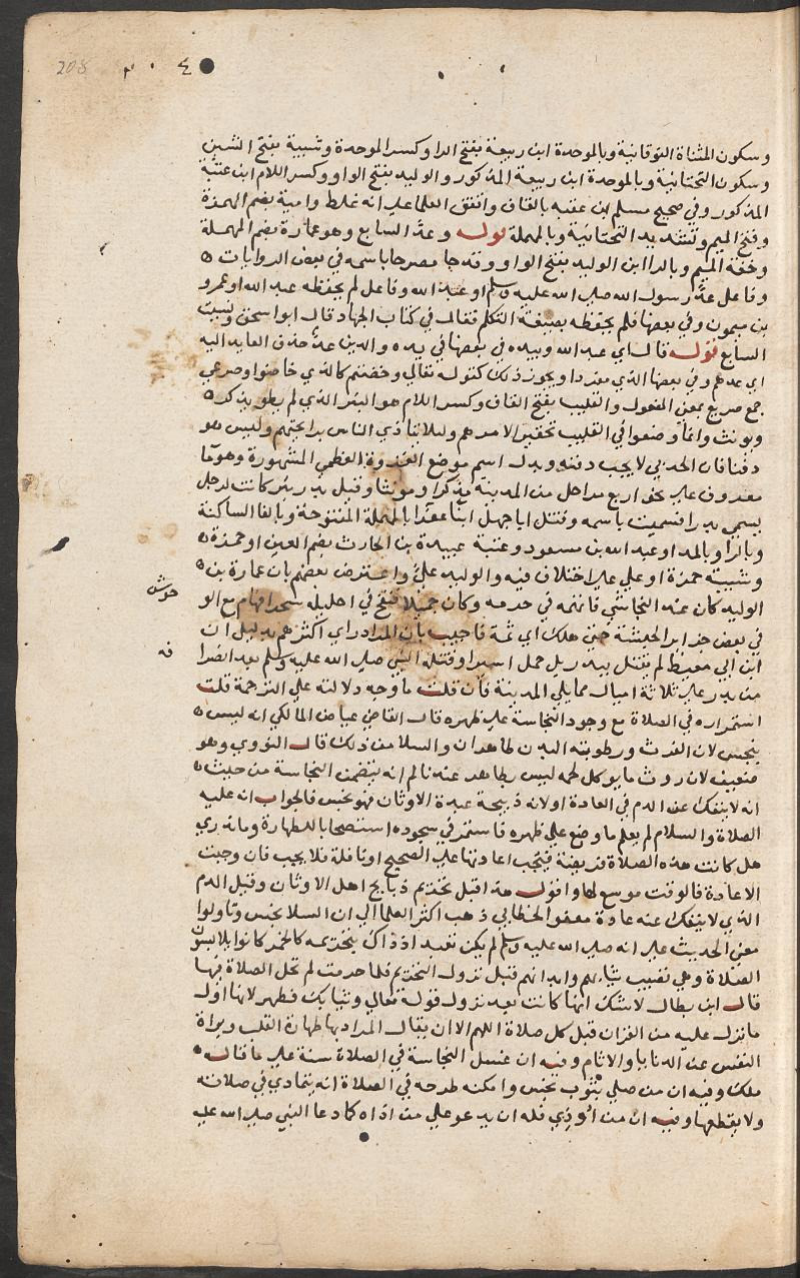 208 ٤٠٢
وسكون المثناة الفوقانية وبالموحدة ابن ربيعة بفتح الرا وكسر الموحدة وشيبة بفتح الشين
وسكون التحتانية وبالموحدة ابن ربيعة المذكور والوليد بفتح الواو وكسر اللام ابن عتبة
المذكور وفي صحيح مسلم ابن عقبه بالقاف واتفق العلما على انه غلط وامية بضم الهمزة
وفتح الميم وتشديد التحتانية وبالمهملة قوله وعد السابع وهو عمارة بضم المهملة
وخفة الميم وبالرا ابن الوليد بفتح الواو وقد جا مصرحا باسمه في بعض الروايات ه
وفاعل عد رسول الله صلى الله عليه وسلم او عبد الله وفاعل لم يحفظه عبد الله او عمرو
بن ميمون وفي بعضها فلم نحفظه بصيغة التكلم فقال في كتاب الجهاد قال ابو اسحق ونسيت
السابع قوله قال اي عبد الله وبيده في بعضها في يده والذين عد حذف العايد اليه
اي عدهم وفي بعضها الذي مفردا ويجوز ذلك كقوله تعالى وخضتم كالذي خاضوا وصرعى
جمع صريع بمعنى المفعول والقليب بفتح القاف وكسر اللام هو البئر الذي لم يطو يذكر ه
ويونث وانما وضعوا في القليب تحقيرا لامرهم وليلا يتاذي الناس برايحتهم وليس هو
دفنا فان الحربي لا يجب دفنه وبدر اسم موضع الغزوة العظمى المشهورة وهو ما
معروف على نحو اربع مراحل من المدينة مذكرا ومونثا وقيل بدر بئر كانت لرجل
يسمى بدرا فسميت باسمه وقتل ابا جهل ابنا عفرا بالمهملة المفتوحة وبالفا الساكنة
وبالرا وبالمد او عبد الله بن مسعود وعتبة عبيدة بن الحارث بضم العين او حمزة ه
وشيبة حمزة او علي على اختلاف فيه والوليد علي واعترض بعضهم بان عمارة بن ه
الوليد كان عند النجاشي فاتهمه في حرمه وكان جميلا فنفخ في احليله سحرا فهام مع الو
حوش
في بعض جزاير الحبشة حتى هلك اي ثمة فاجيب بان المراد راي اكثرهم بدليل ان
ابن ابي معيط لم يقتل ببدر بل حمل اسيرا وقتله النبي صلى الله عليه وسلم بعد انصرا
فه
من بدر على ثلاثة اميال مما يلي المدينة فان قلت ما وجه دلالته على الترجمة قلت
استمراره في الصلاة مع وجود النجاسة على ظهره قال القاضي عياض المالكي انه ليس ه
بنجس لان الفرث ورطوبته البدن طاهران والسلا من ذلك قال النووي وهو
ضعيف لان روث ما يوكل لحمه ليس بطاهر عندنا ثم انه يتضمن النجاسة من حيث ه
انه لا ينفك عن الدم في العادة او لانه ذبيحة عبدة الاوثان فهو نجس فالجواب انه عليه
الصلاة والسلام لم يعلم ما وضع على ظهره فاستمر في سجوده استصحابا للطهارة وما ندري
هل كانت هذه الصلاة فريضة فيجب اعادتها على الصحيح او نافلة فلا يجب فان وجبت
الاعادة فالوقت موسع لها واقول هذا قبل تحريم ذبايح اهل الاوثان وقبل الدم
الذي لا ينفك عنه عادة معفو الخطابي ذهب اكثر العلما الى ان السلا نجس وتاولوا
معنى الحديث على انه صلى الله عليه وسلم لم يكن تعبد اذ ذاك بتحريمه كالخمر كانوا يلابسون
الصلاة وهي تصيب ثيابهم وابدانهم قبل نزول التحريم فلما حرمت لم تحل الصلاة فيها
قال ابن بطال لاشك انها كانت بعد نزول قوله تعالى وثيابك فطهر لانها اول
ما نزل عليه من القران قبل كل صلاة اللهم الا ان يقال المراد بها طهارة القلب وبراة
النفس عن الدنايا والاثام وفيه ان غسل النجاسة في الصلاة سنة على ما قال
ملك وفيه ان من صلى بثوب نجس وامكنه طرحه في الصلاة انه يتمادي في صلاته
ولا يقطعها وفيه ان من اوذي فله ان يدعو على من اذاه كما دعا النبي صلى الله عليه